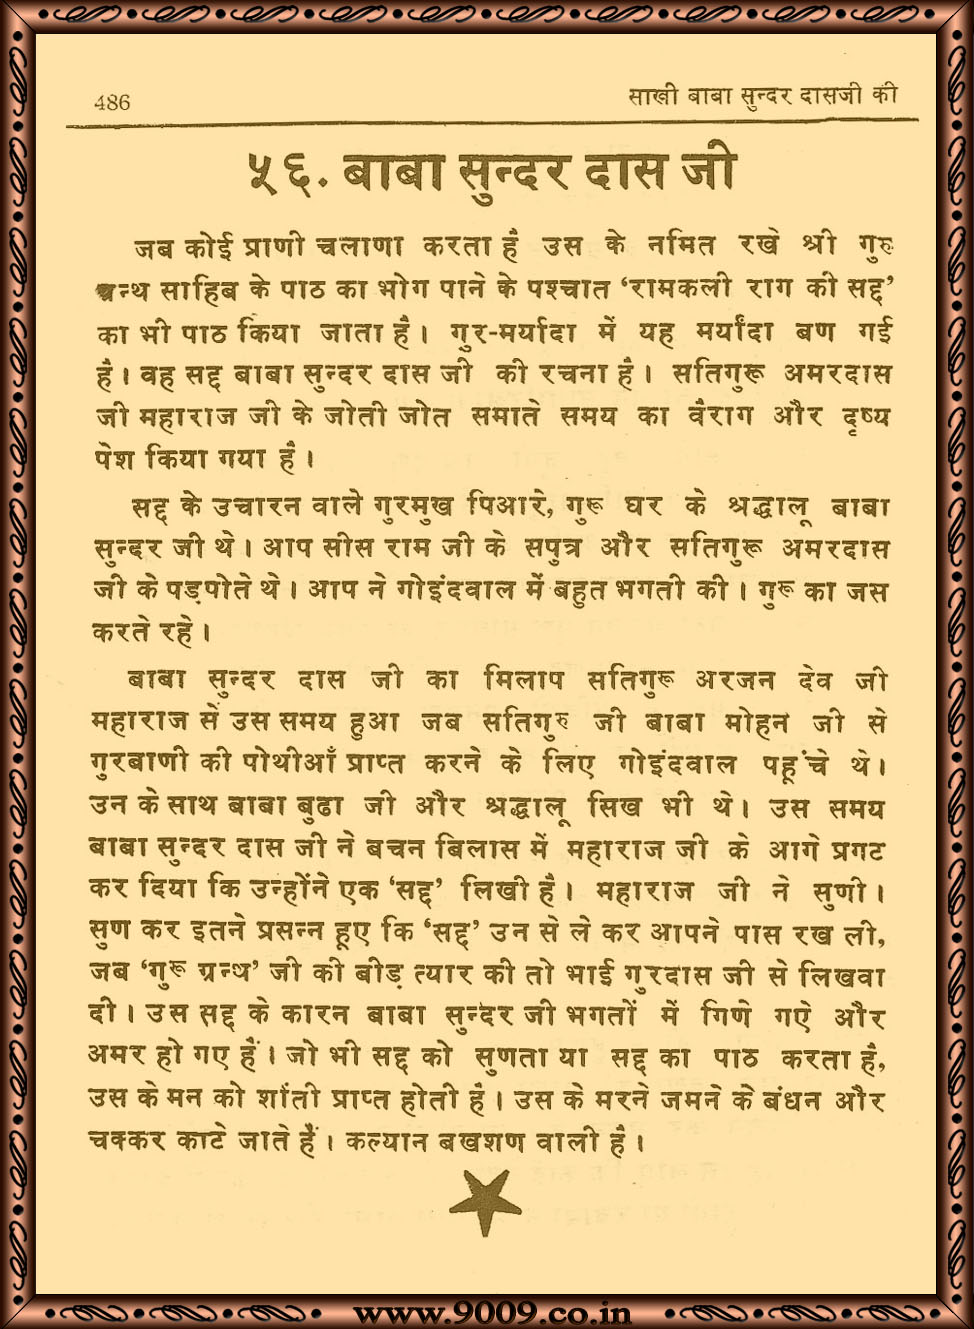 486
साखी बाबा सुन्दर दासजी की
५६. बाबा सुन्दर दास जी
जब कोई प्राणी चलाणा करता है उस के नमित रखे श्री गुरु
ग्रन्थ साहिब के पाठ का भोग पाने के पश्चात ‘रामकली राग की सद्द’
का भी पाठ किया जाता है। गुर-मर्यादा में यह मर्यांदा बण गई
है। वह सद्द बाबा सुन्दर दास जी की रचना है। सतिगुरू अमरदास
जी महाराज जी के जोती जोत समाते समय का वैराग और दृष्य
पेश किया गया है।
सद्द के उचारन वाले गुरमुख पिआरे, गुरू घर के श्रद्धालू बाबा
सुन्दर जी थे। आप सीस राम जी के सपुत्र और सतिगुरू अमरदास
जी के पड़पोते थे। आप ने गोइंदवाल में बहुत भगती की। गुरू का जस
करते रहे।
बाबा सुन्दर दास जी का मिलाप सतिगुरू अरजन देव जी
महाराज से उस समय हुआ जब सतिगुरु जी बाबा मोहन जी से
गुरबाणी की पोथीआँ प्राप्त करने के लिए गोइंदवाल पहूंचे थे।
उन के साथ बाबा बुढा जी और श्रद्धालू सिख भी थे। उस समय
बाबा सुन्दर दास जी ने बचन बिलास में महाराज जी के आगे प्रगट
कर दिया कि उन्होंने एक ‘सद्द’ लिखी है। महाराज जी ने सुणी।
सुण कर इतने प्रसन्न हूए कि ‘सद्द’ उन से ले कर आपने पास रख ली,
जब ‘गुरू ग्रन्थ’ जी की बीड़ त्यार की तो भाई गुरदास जी से लिखवा
दी। उस सद्द के कारन बाबा सुन्देर जी भगतों में गिणे गऐ और
अमर हो गए हैं। जो भी सद्द को सुणता या सद्द का पाठ करता है,
उस के मन को शाँती प्राप्त होती है। उस के मरने जमने के बंधन और
चक्कर काटे जाते हैं। कल्यान बखशण वाली है।
www.9009.co.in